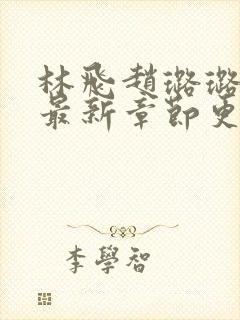 林飛趙璐璐
最新章節更
李學智